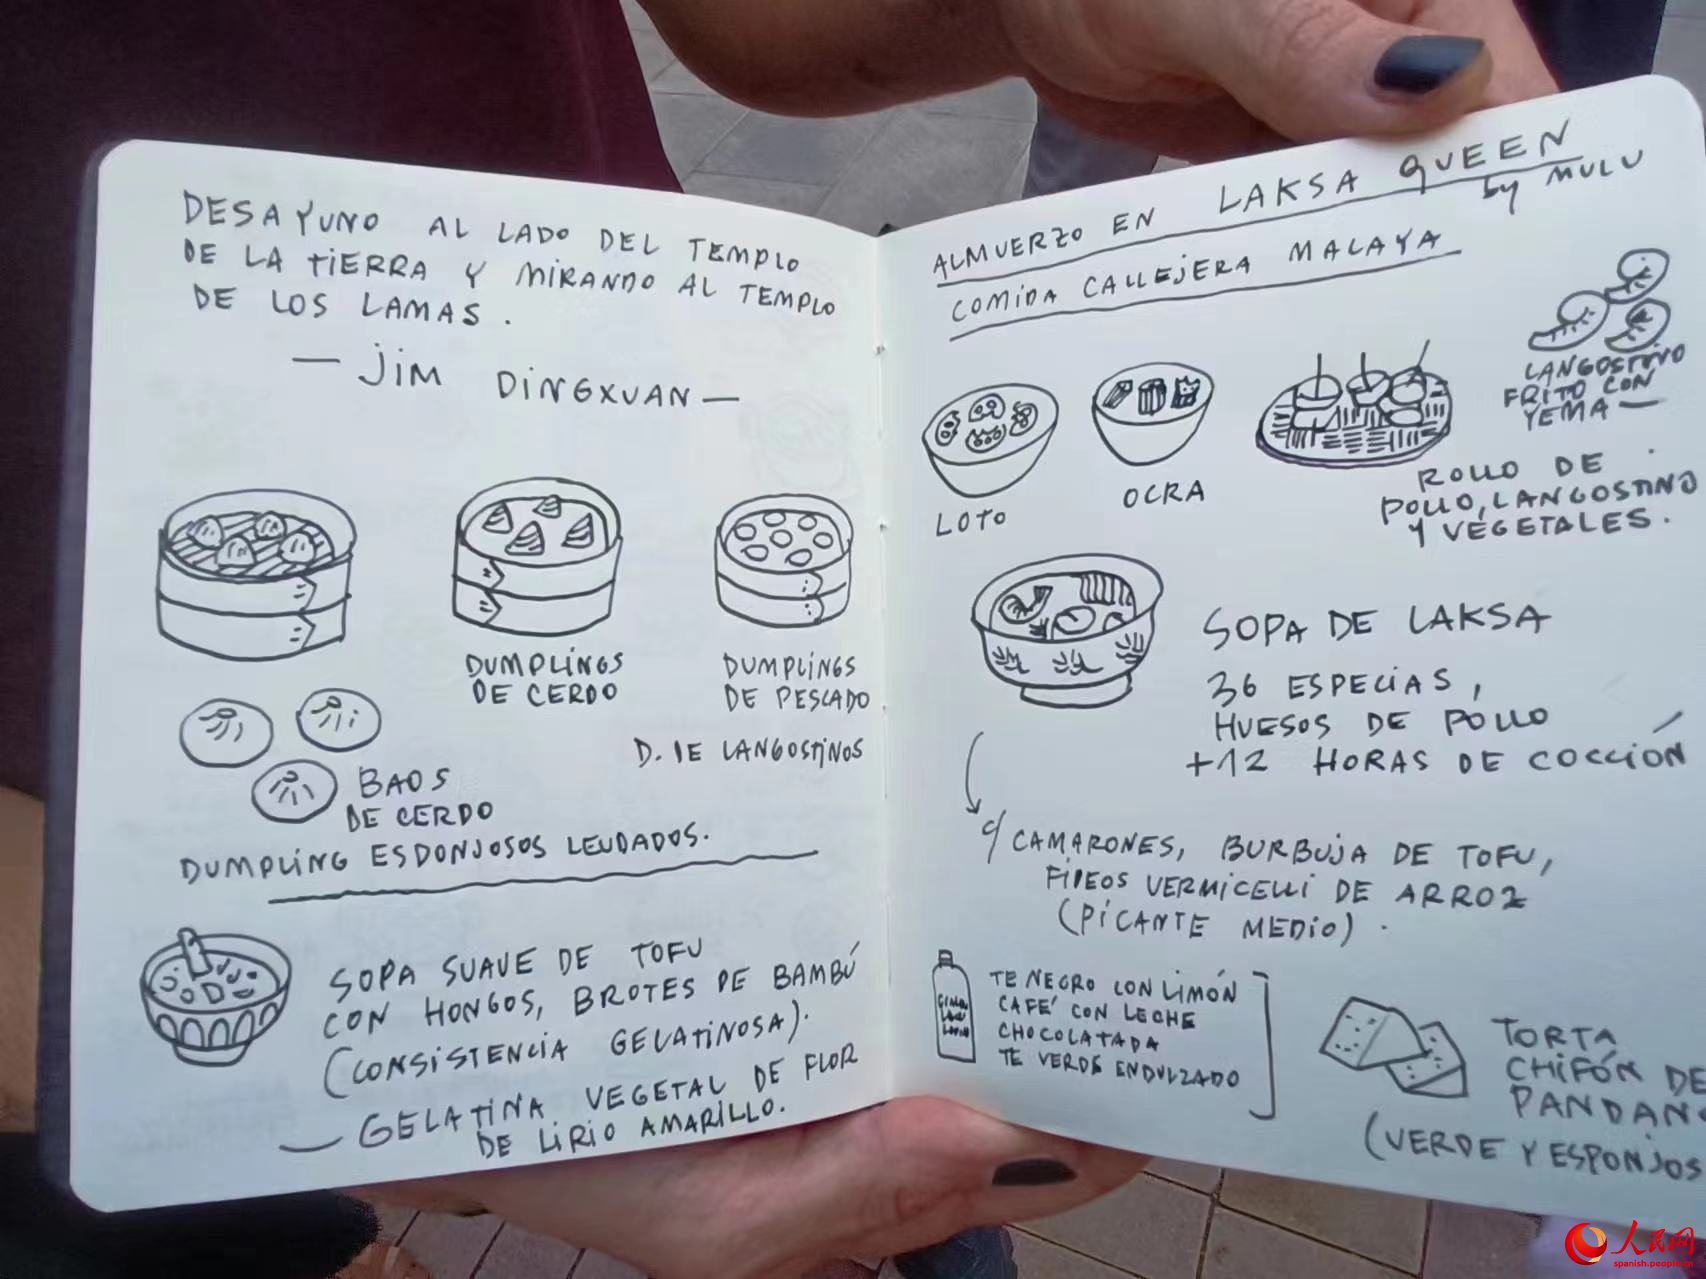 DESAYUNO AL LADO DEL TEMPLO
DE LA TIERRA Y MIRANDO AL TEMPLO
DE LOS LAMAS.
— JIM DINGXUAN —
DUMPLINGS
DE CERDO
DUMPLINGS
DE PESCADO
D. DE LANGOSTINOS
BAOS
DE CERDO
DUMPLING ESPONJOSOS LEUDADOS.
SOPA SUAVE DE TOFU
CON HONGOS, BROTES DE BAMBÚ
(CONSISTENCIA GELATINOSA).
— GELATINA VEGETAL DE FLOR
DE LIRIO AMARILLO.
ALMUERZO EN LAKSA QUEEN
by MULU
COMIDA CALLEJERA MALAYA
LOTO
OCRA
LANGOSTINO
FRITO CON
YEMA —
ROLLO DE
POLLO, LANGOSTINO
Y VEGETALES.
SOPA DE LAKSA
36 ESPECIAS,
HUESOS DE POLLO
+12 HORAS DE COCCIÓN
c/ CAMARONES, BURBUJA DE TOFU,
FIDEOS VERMICELLI DE ARROZ
(PICANTE MEDIO).
TE NEGRO CON LIMÓN
CAFÉ CON LECHE
CHOCOLATADA
TE VERDE ENDULZADO
TORTA
CHIFÓN DE
PANDAN
(VERDE Y ESPONJOS
人民网
spanish.people.cn